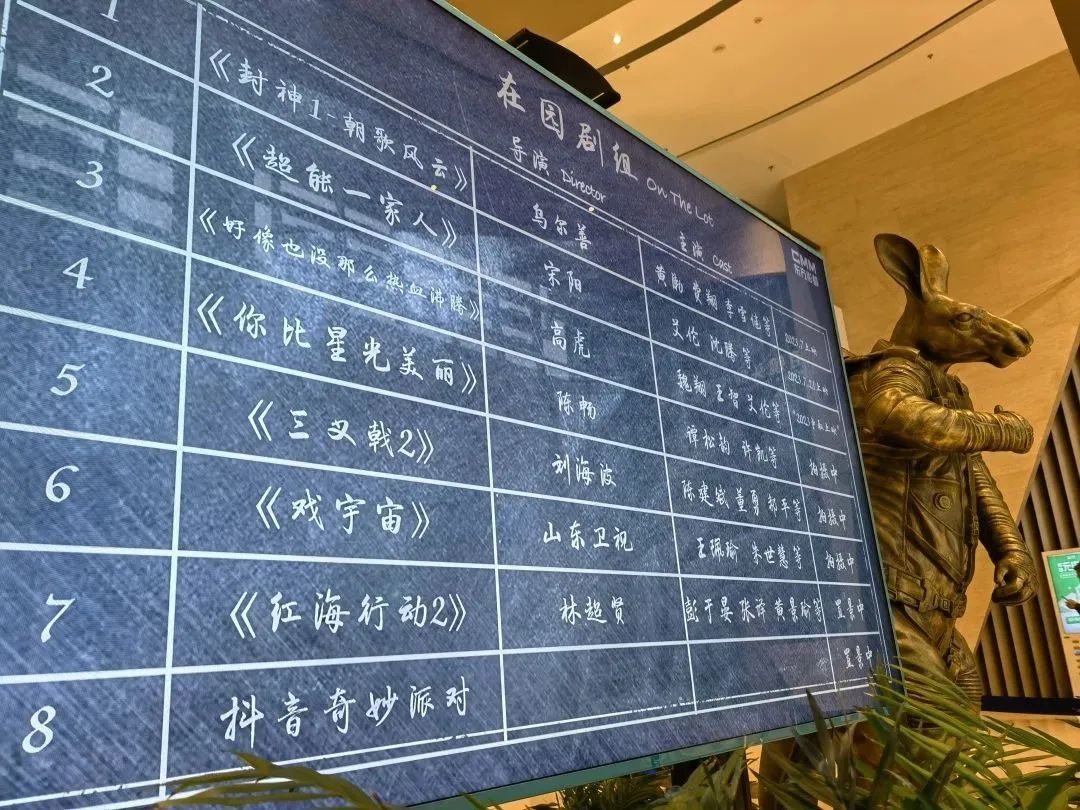 在园剧组 On The Lot
CMM
东方影都
导演 Director 主演 Cast
1 《封神1-朝歌风云》 乌尔善 黄渤 费翔 李雪健等 2023.7上映
2 《超能一家人》 宋阳 艾伦 沈腾等 2023.7.21上映
3 《好像也没那么热血沸腾》 高虎 魏翔 王智 艾伦等
4 《你比星光美丽》 陈畅 谭松韵 许凯等 拍摄中
5 《三叉戟2》 刘海波 陈建斌 董勇 郝平等 拍摄中
6 《戏宇宙》 山东卫视 王珮瑜 朱世慧等 拍摄中
7 《红海行动2》 林超贤 彭于晏 张译 黄景瑜等 置景中
8 抖音奇妙派对 置景中